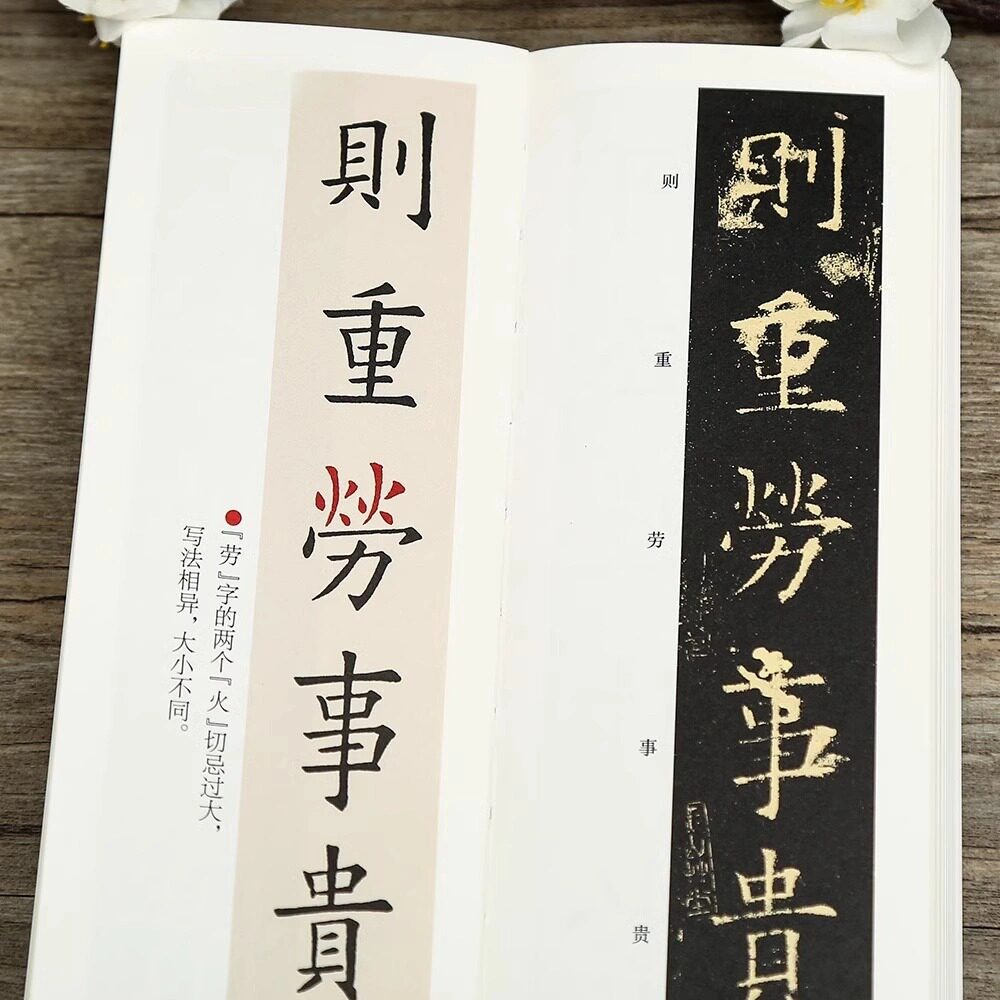 則重勞事貴
則重勞事貴
则
重
劳
事
贵
『劳』字的两个『火』切忌过大，
写法相异，大小不同。